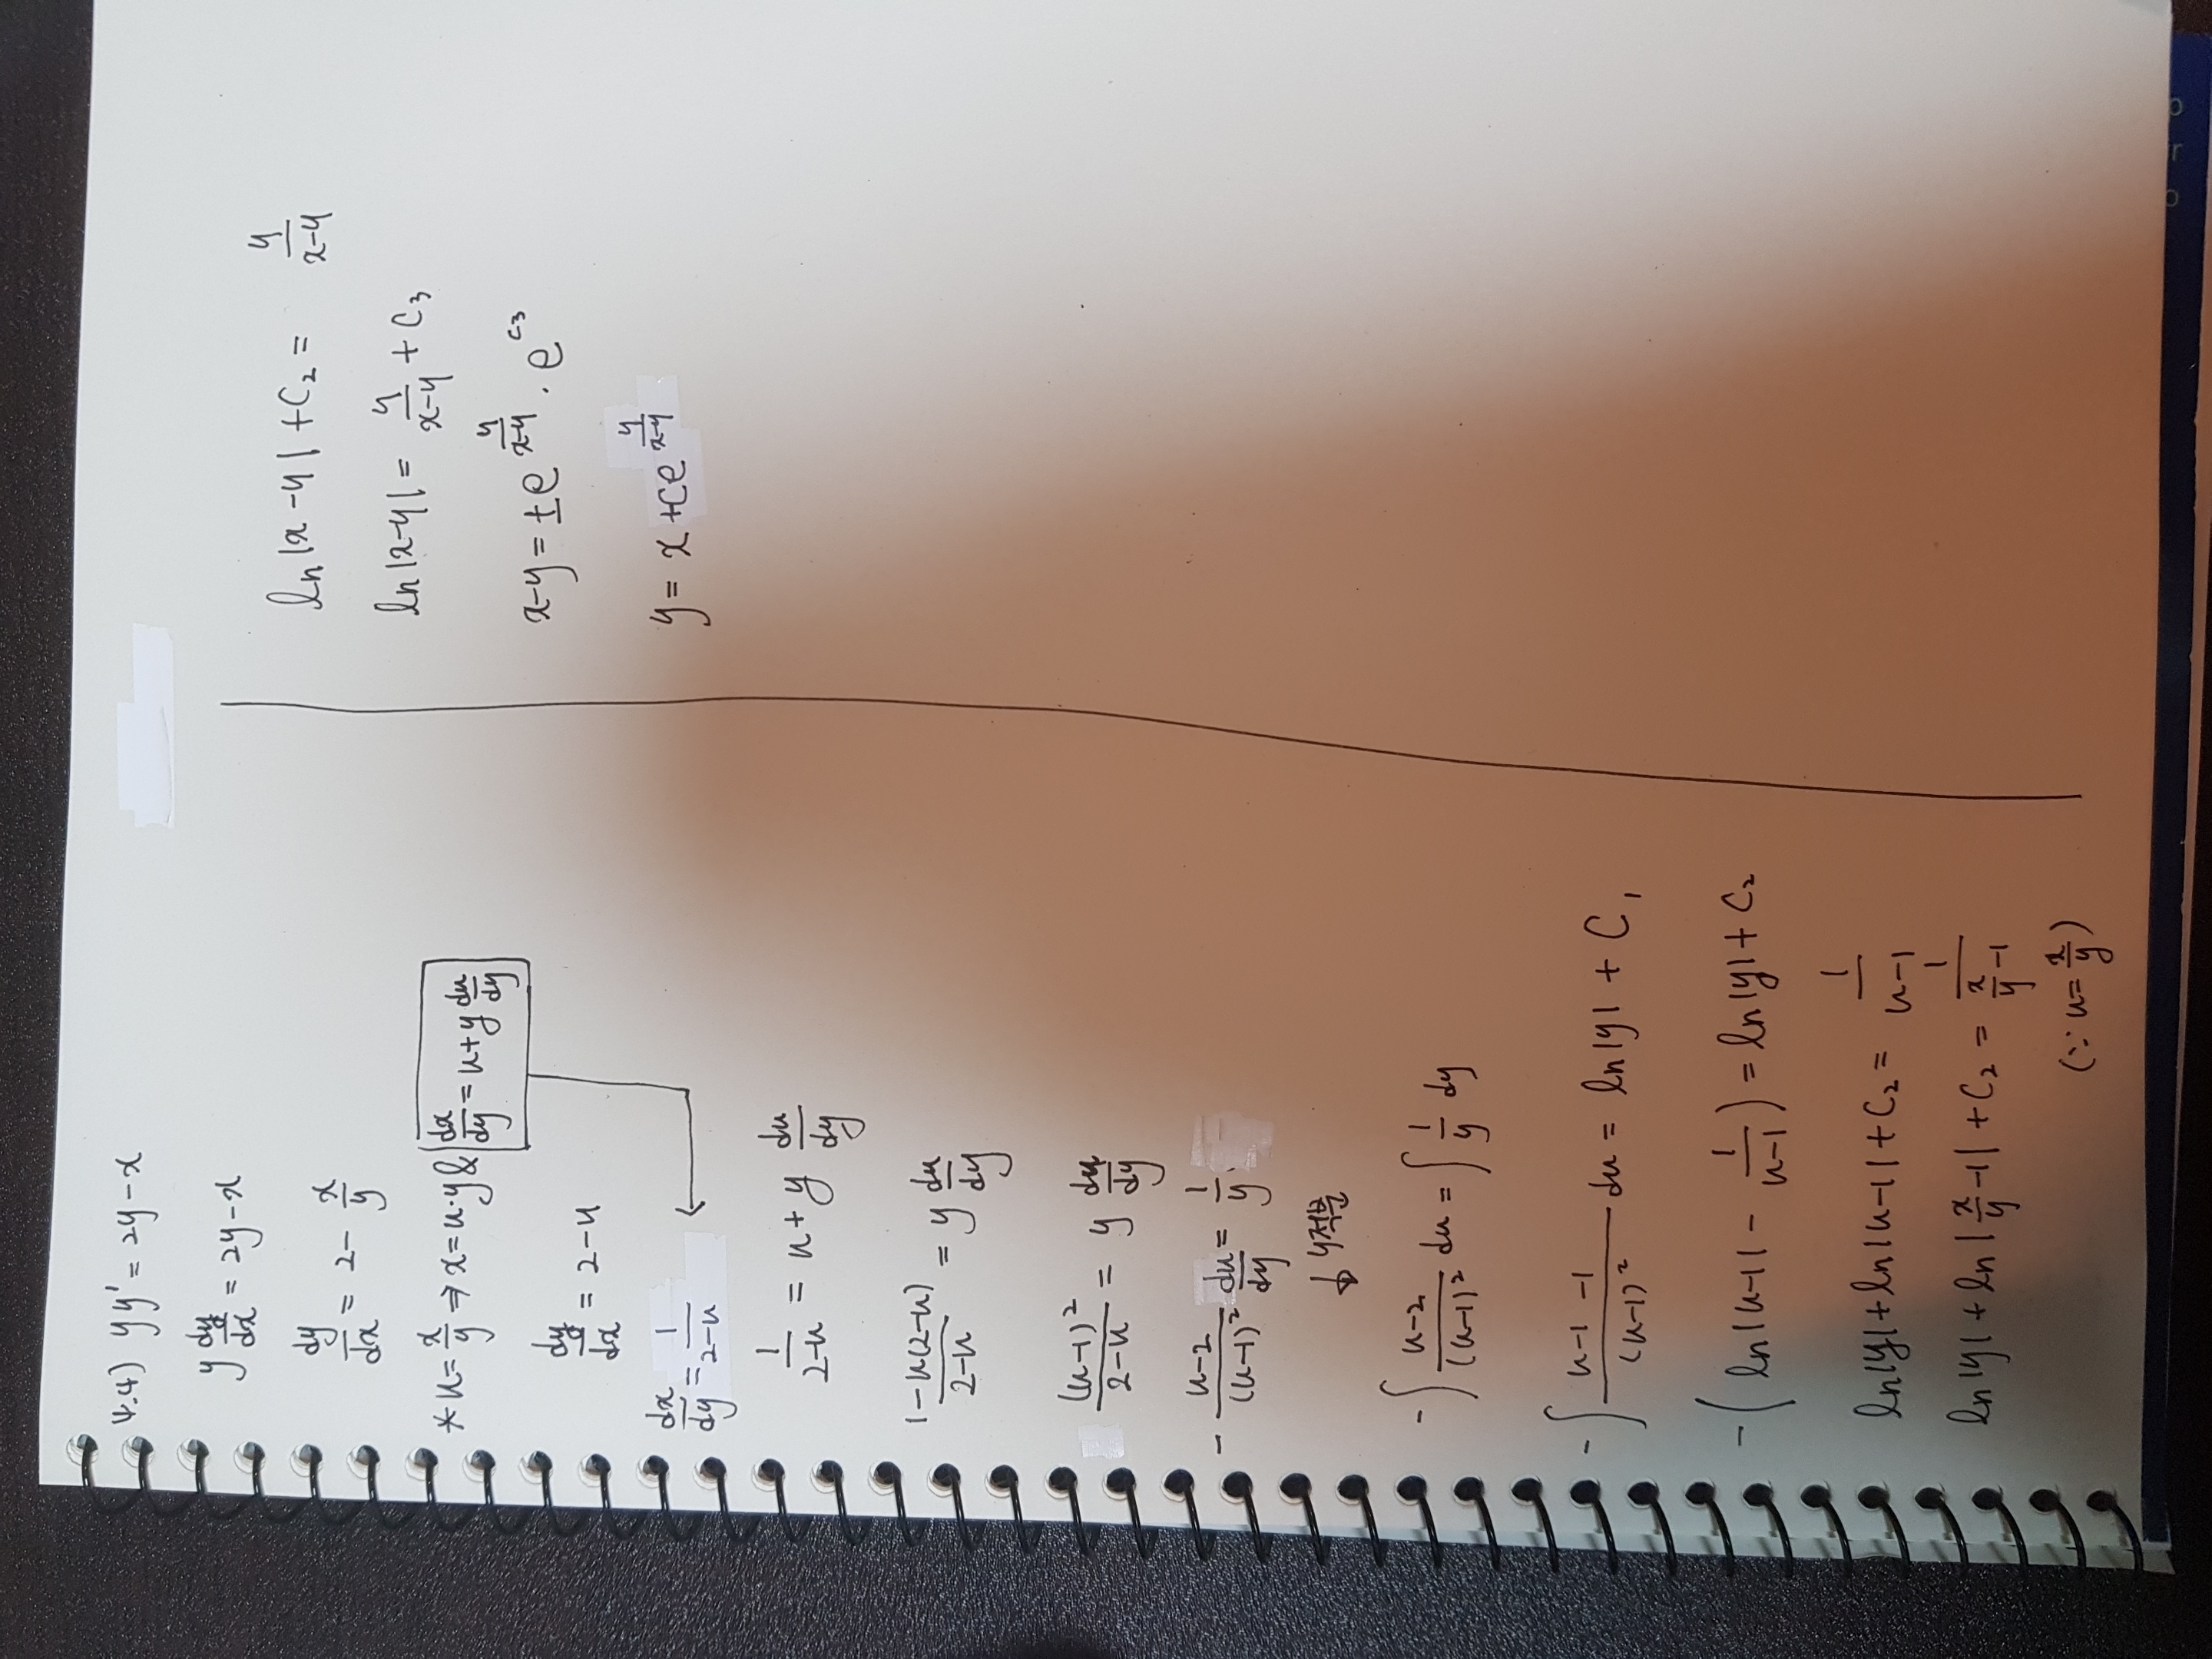 4.4) yy' = 2y-x
y dy/dx = 2y-x
dy/dx = 2- x/y
* u = x/y ⇒ x = u·y & dx/dy = u+y du/dy
dy/dx = 2-u
dx/dy = 1/(2-u)
1/(2-u) = u+y du/dy
(1-u(2-u))/(2-u) = y du/dy
(u-1)²/(2-u) = y du/dy
- (u-2)/(u-1)² du/dy = 1/y
↓ y적분
-∫ (u-2)/(u-1)² du = ∫ 1/y dy
-∫ (u-1-1)/(u-1)² du = ln|y| + C₁
-( ln|u-1| - 1/(u-1) ) = ln|y| + C₂
ln|y| + ln|u-1| + C₂ = 1/(u-1)
ln|y| + ln|x/y -1| + C₂ = 1/(x/y -1)
(∵ u = x/y)
ln|x-y| + C₂ = y/(x-y)
ln|x-y| = y/(x-y) + C₃
x-y = ±e^(y/(x-y)) · e^(C₃)
y = x + Ce^(y/(x-y))